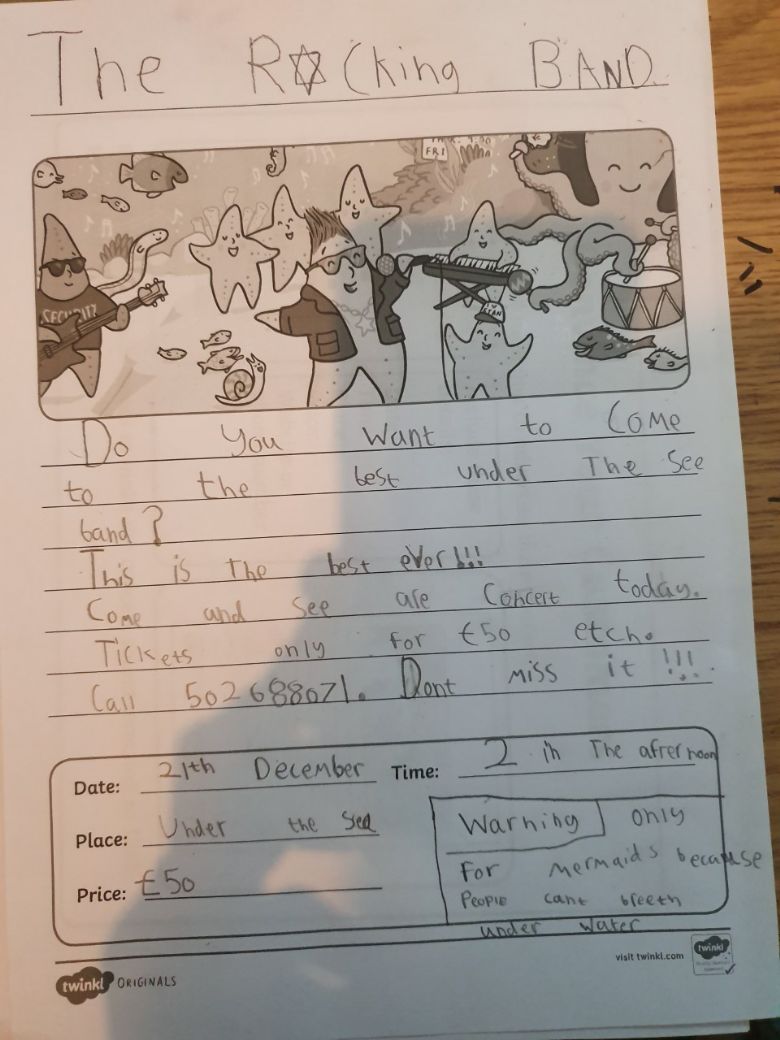 The R✡cking BAND.
FRI
SECURITY
Do you want to Come
to the best under The see
band?
This is The best ever!!!
Come and see are Concert today.
Tickets only for £50 etch.
Call 502688071. Dont miss it!!!
Date: 21th December Time: 2 in The afternoon
Place: Under the Sea
Price: £50
Warning only
For mermaids because
People cant breeth
under water
visit twinkl.com
twinkl ORIGINALS
twinkl